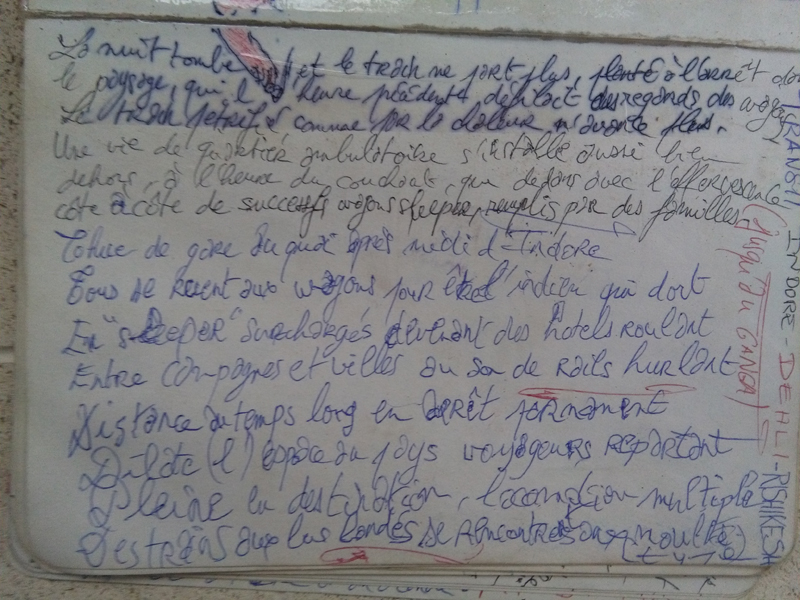 La nuit tombe et le train ne part plus, planté à l'arrêt dans
le paysage, qui l'heure précédente, des regards des
Le train pétrifié comme par la chaleur n'avance plus.
Une vie de quartier ambulatoire s'installe aussi bien
dehors, à l'heure du couchant, que dedans avec l'effervescence
côte à côte de successifs wagons sleeper, remplis par des familles.
Cohue de gare au quai après midi d'Indore
Tous se ruent aux wagons pour être l'indien qui dort
En "sleeper" surchargés devenant des hotels roulant
Entre campagnes et villes au son de rails hurlant
Distance au temps long en arrêt permanent
Dilate (l) espace au pays voyageurs repartant
Pleine en destination, l'occasion multiple
Des trains aux bas de rencontres
TRANSIT INDORE - DEHLI - RISHIKESH
(jusqu'au GANGA)